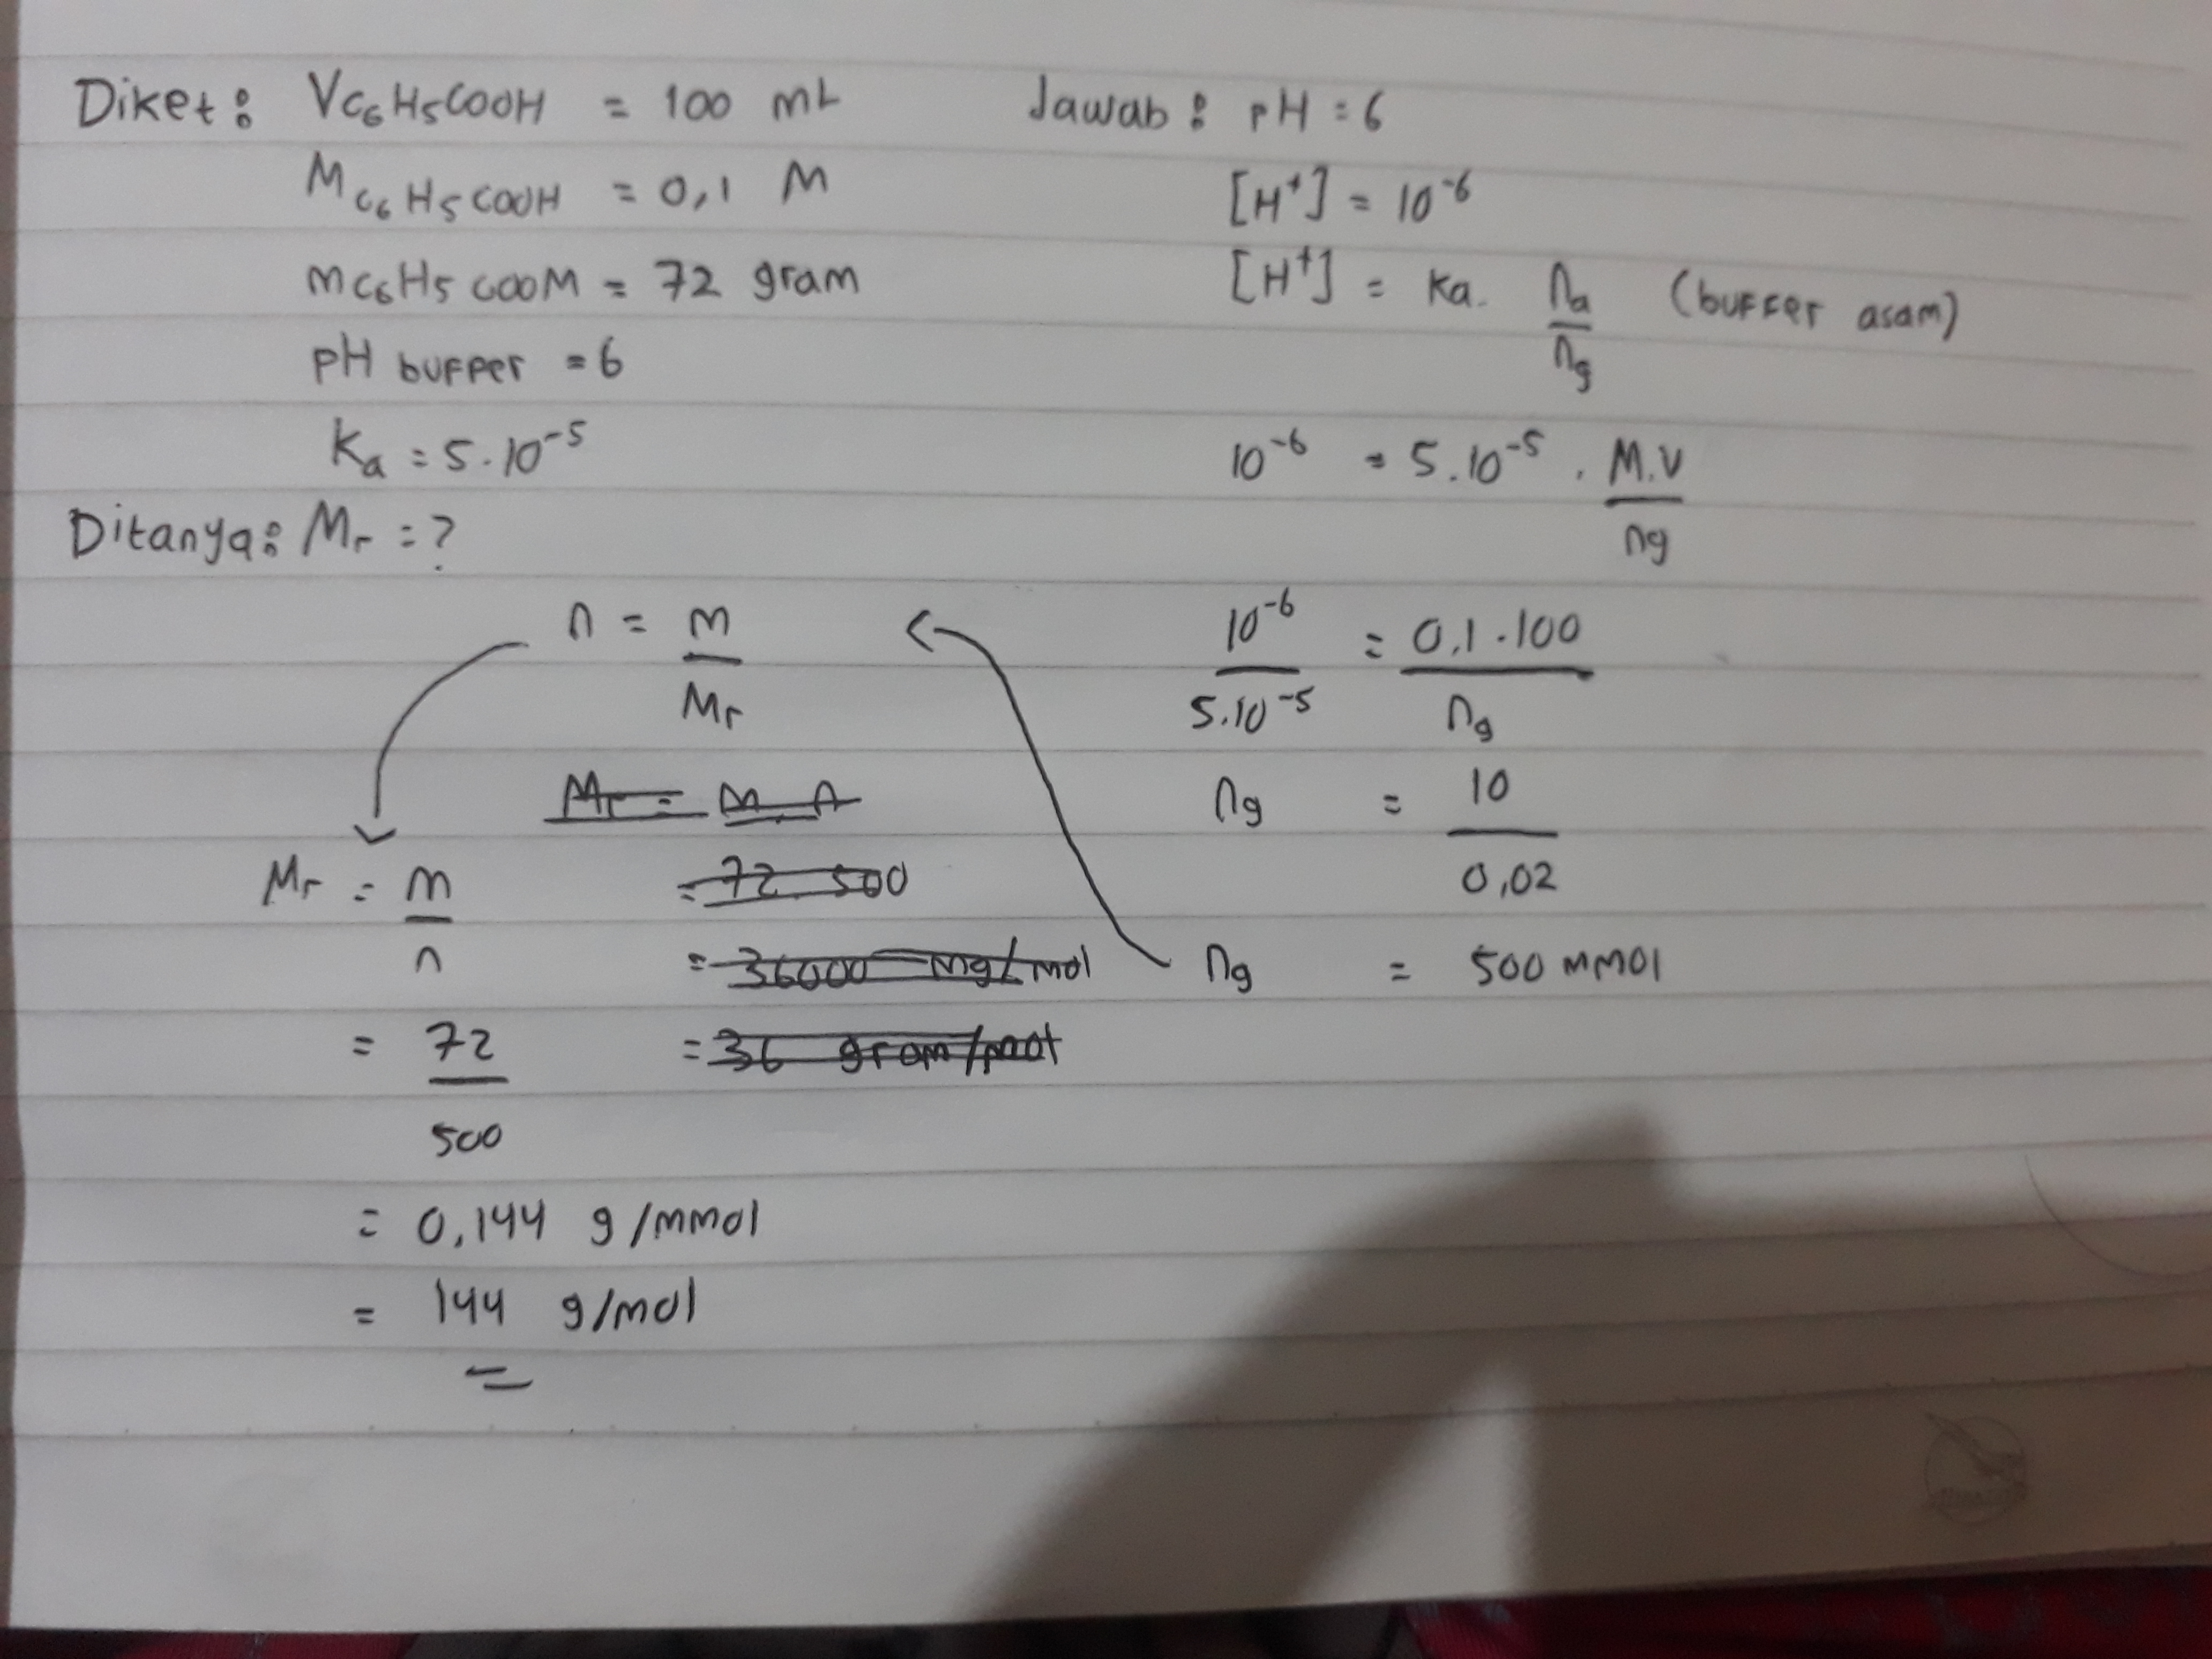 Diket : V C6H5COOH = 100 mL
M C6H5COOH = 0,1 M
m C6H5COOM = 72 gram
pH buffer = 6
Ka = 5.10⁻⁵
Ditanya : Mr = ?
Jawab : pH = 6
[H⁺] = 10⁻⁶
[H⁺] = Ka. na/ng (buffer asam)
10⁻⁶ = 5.10⁻⁵ . M.V/ng
10⁻⁶/5.10⁻⁵ = 0,1.100/ng
ng = 10/0,02
ng = 500 mmol
n = m/Mr
Mr = m n
= 72 500
= 36000 mg/mol
= 36 gram/mol
Mr = m/n
= 72/500
= 0,144 g/mmol
= 144 g/mol